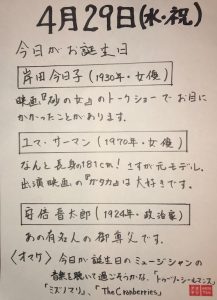 4月29日(水・祝)
今日がお誕生日
岸田今日子(1930年・女優)
映画『砂の女』のトークショーでお目に
かかったことがあります。
ユマ・サーマン(1970年・女優)
なんと長身の181cm! さすが元モデル。
出演映画の『ガタカ』は大好きです。
安倍晋太郎(1924年・政治家)
あの有名人の御尊父です。
〈オマケ〉今日が誕生日のミュージシャンの
音楽を聴いて過ごそうかな。「トゥーツ・シールマンス」
「ミズノマリ」、「The Cranberries」